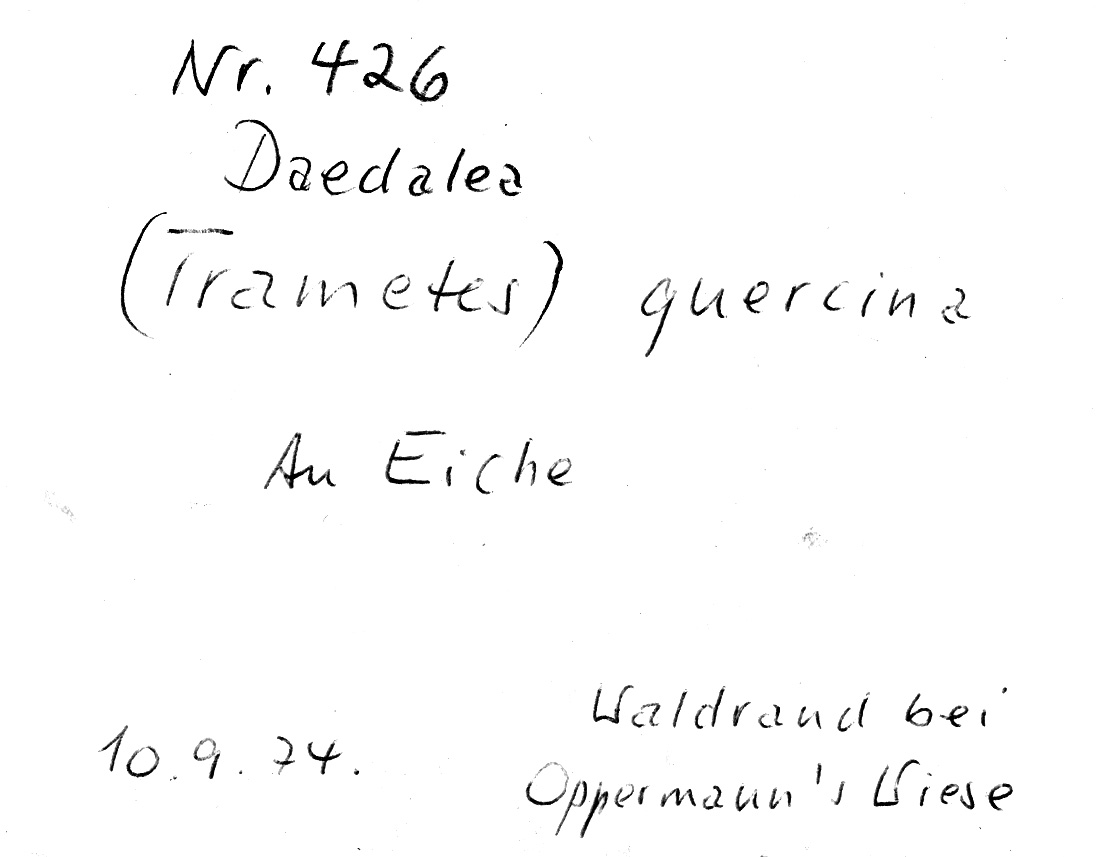 Nr. 426
Daedalea
(Trametes) quercina
An Eiche
Waldrand bei
10.9.74. Oppermann's Wiese